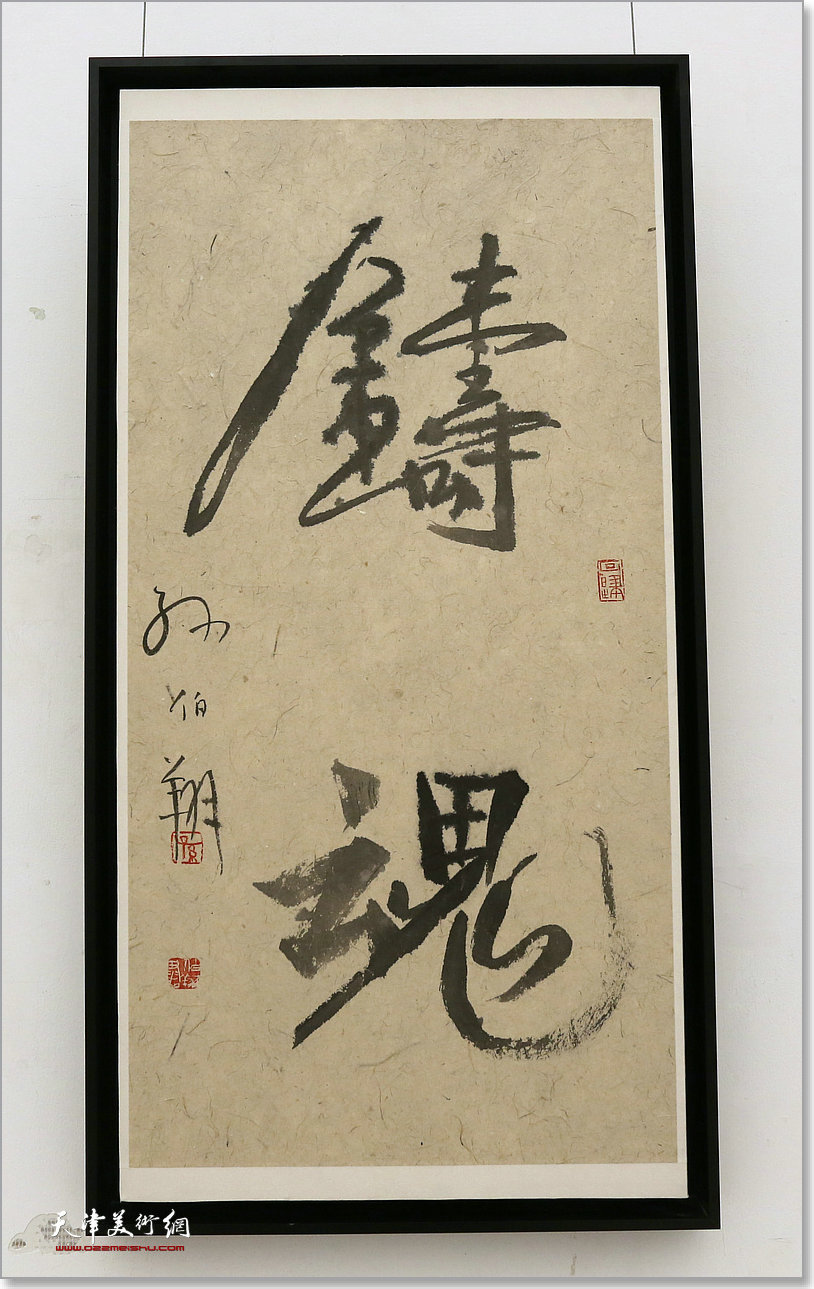 鑄
魂
孙伯翔
天津美術網
www.022meishu.com